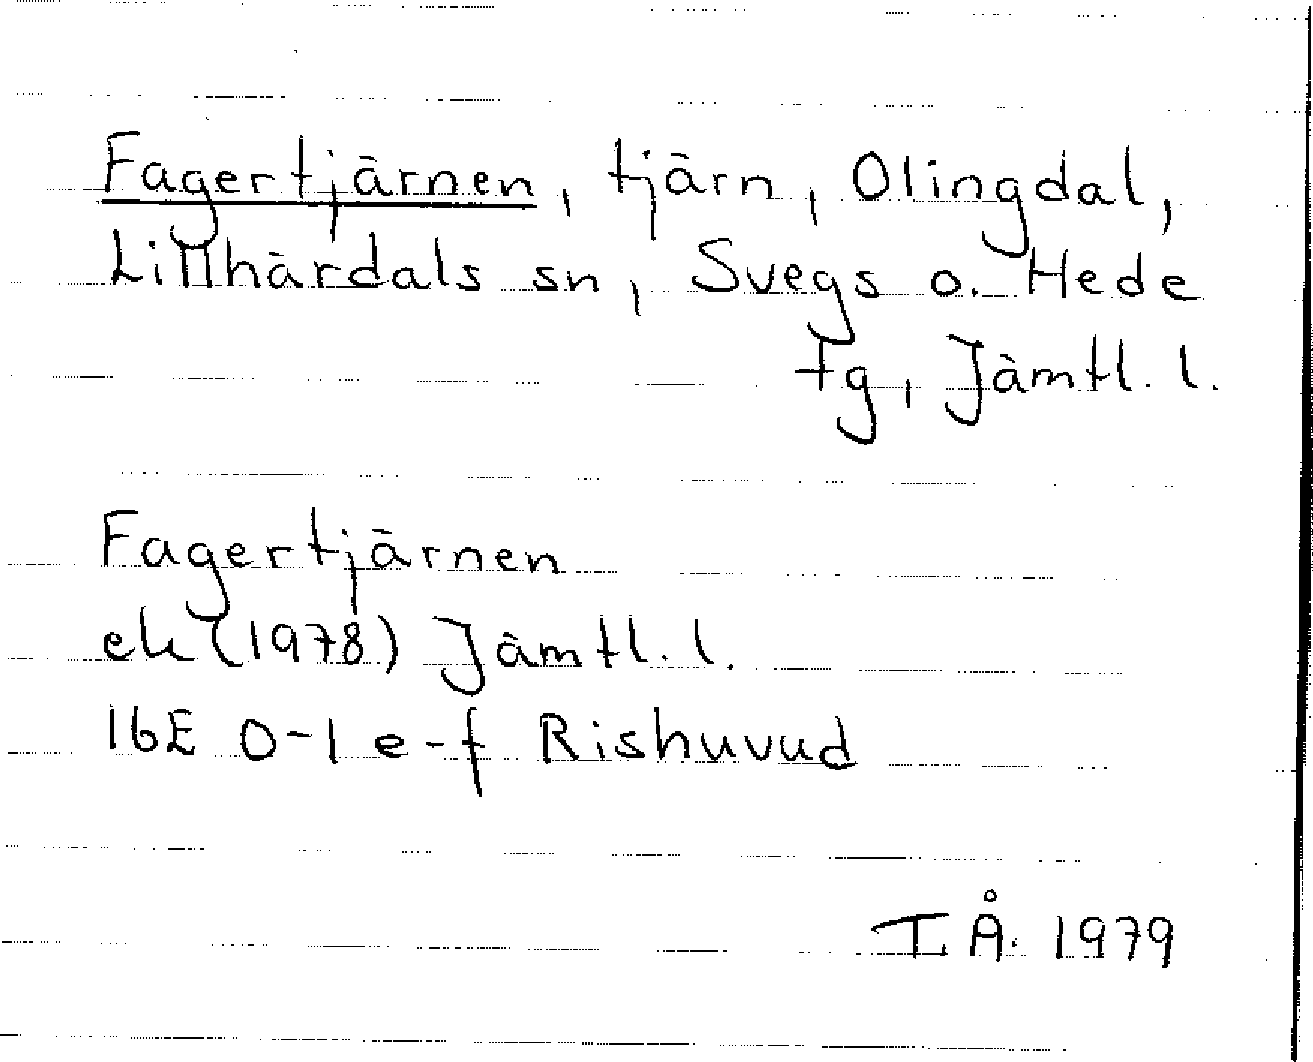 Fagertjärnen, tjärn, Olingdal,
Lillhärdals sn, Svegs o. Hede
tg, Jämtl. l.
Fagertjärnen
ek (1978) Jämtl. l.
16E 0-1 e-f Rishuvud
I Å. 1979